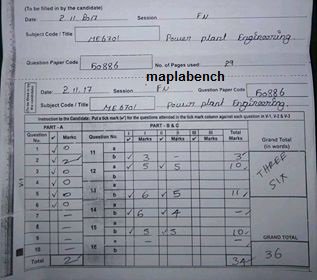 (To be filled in by the candidate)
Date: 2.11.2017 Session F.N
Subject Code / Title ME6701 Power plant Engineering.
Question Paper Code 50886 No. of Pages used: 29
maplabench
Date: 2.11.17 Session F.N Question Paper Code 50886
Subject Code / Title ME6701 Power plant Engineering
Instruction to the Candidate: Put a tick mark (✓) for the questions attended in the tick mark column against each question in V-1, V-2 & V-3
PART - A PART - B & C Grand Total
Question No. ✓ Marks Question No. i ✓ Marks ii ✓ Marks iii ✓ Marks Total Marks (in words)
1 ✓ 0 11 a
2 ✓ 2 b ✓ 3 - 3
3 ✓ 0 12 a ✓ 5 ✓ 5 10
4 ✓ 0 b
5 ✓ 0 13 a
6 ✓ 0 b ✓ 6 ✓ 5 11
7 14 a
8 b
9 15 a
10 b ✓ 5 ✓ 5 10
16 a
b
Total 2 Total 34
THREE
SIX
GRAND TOTAL
36
V-1